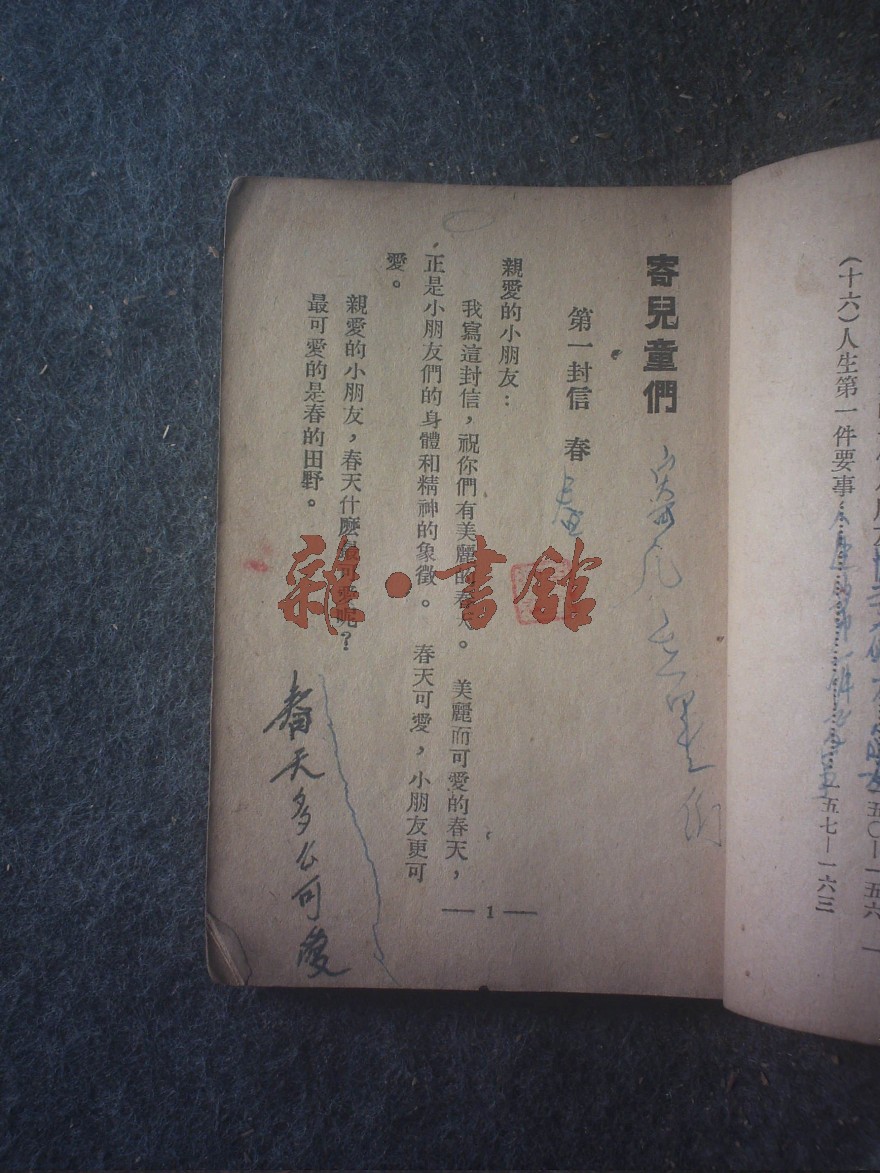 (十六)人生第一件要事……一五七—一六三
寄兒童們
第一封信 春
春
親愛的小朋友：
我寫這封信，祝你們有美麗的春天。 美麗而可愛的春天，
正是小朋友們的身體和精神的象徵。 春天可愛，小朋友更可
愛。
親愛的小朋友，春天什麼最可愛呢？
最可愛的是春的田野。
春天多么可愛
— 1 —
雜·書館